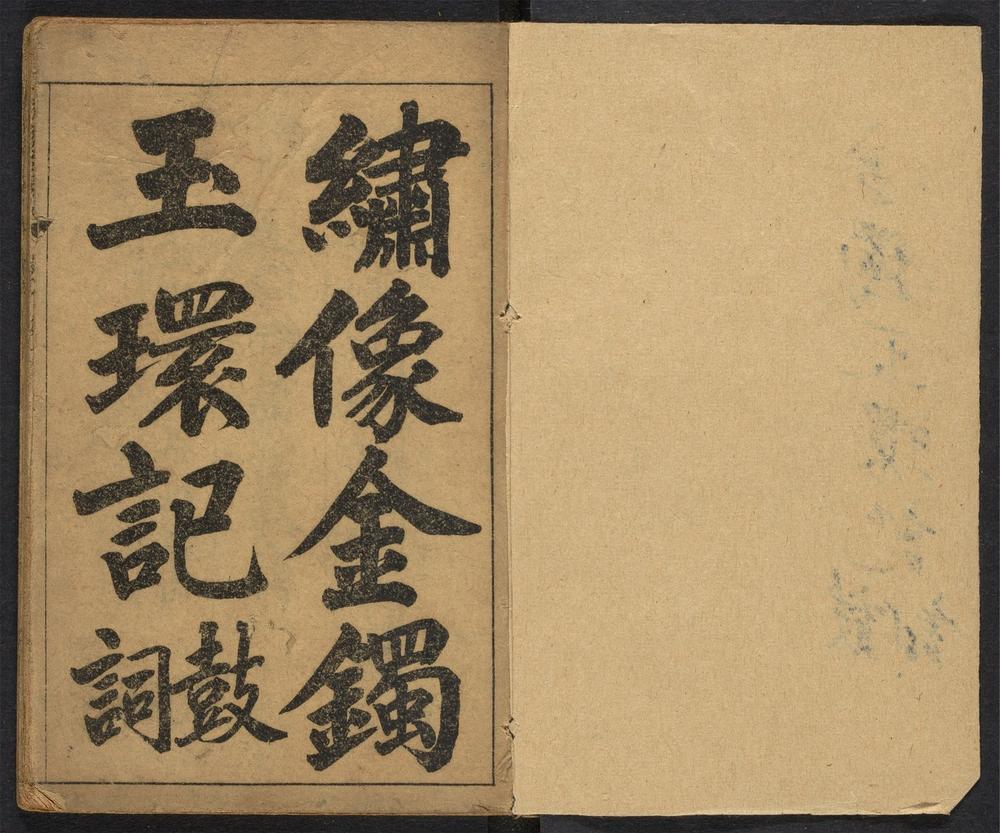 繡像金鐲
玉環記鼓詞